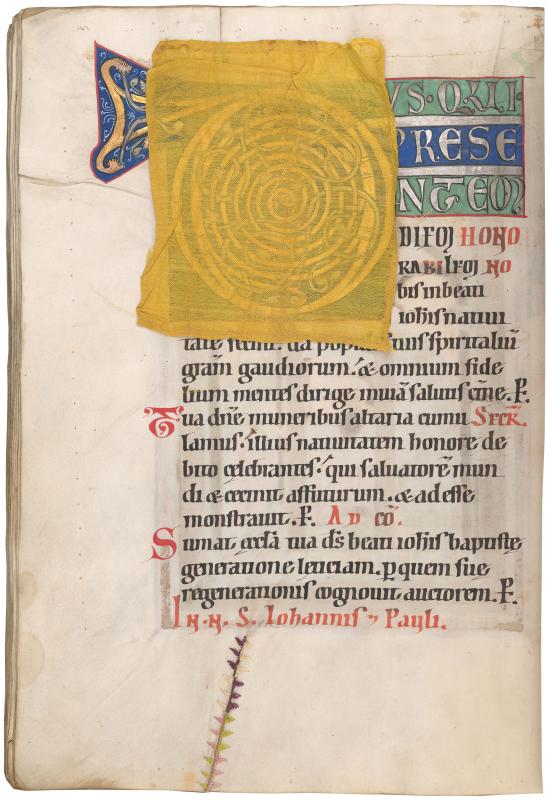 VS · QUI ·
PRESE
NTEM
DIEM HONO
RABILEM NO
bis in beati
iohis natiui
tate fecisti. da popul tuis spiritaliū
gratiā gaudiorum. & omnium fide
lium mentes dirige in uiā salutis etne. P.
Tua dn̄e muneribus altaria cumu SECR.
lamus. illius natiuitatem honore de
bito celebrantes. qui saluatorē mun
di & cecinit affuturum. & adesse
monstrauit. P. AD CŌ.
Sumat eccl̄a tua d̄s beati iohis baptiste
generatione leticiam. p quem sue
regenerationis cognouit auctorem. P.
IN. N. S. Iohannis 7 Pauli.